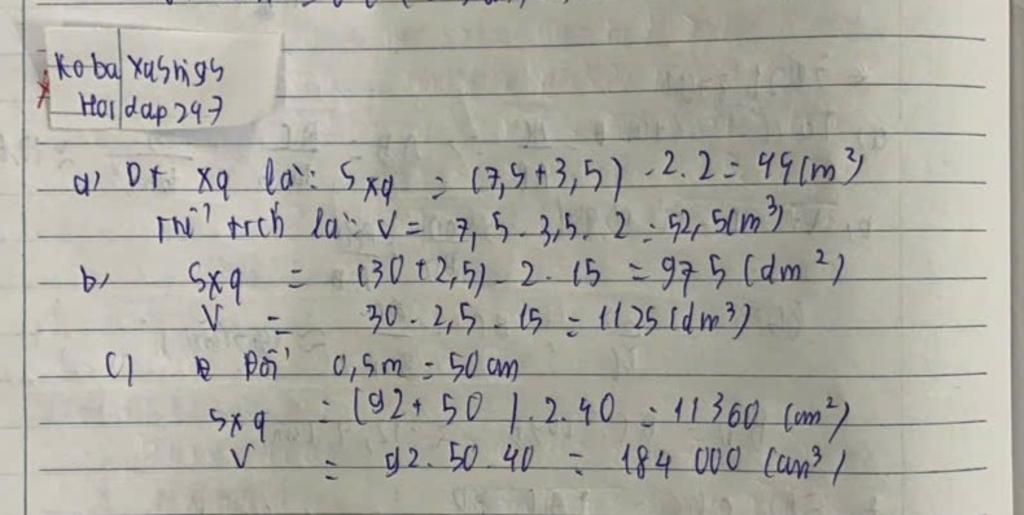 Koba Xusnigs
Hoi dap 247
a) Dt xq là: Sxq = (7,5+3,5) . 2. 2 = 44 (m²)
Thể tích là: V = 7,5. 3,5. 2 = 52,5 (m³)
b) Sxq = (30 + 2,5) . 2. 15 = 975 (dm²)
V = 30 . 2,5 . 15 = 1125 (dm³)
c) Đổi 0,5m = 50 cm
Sxq = (92+ 50 ). 2. 40 = 11360 (cm²)
V = 92. 50. 40 = 184 000 (cm³)